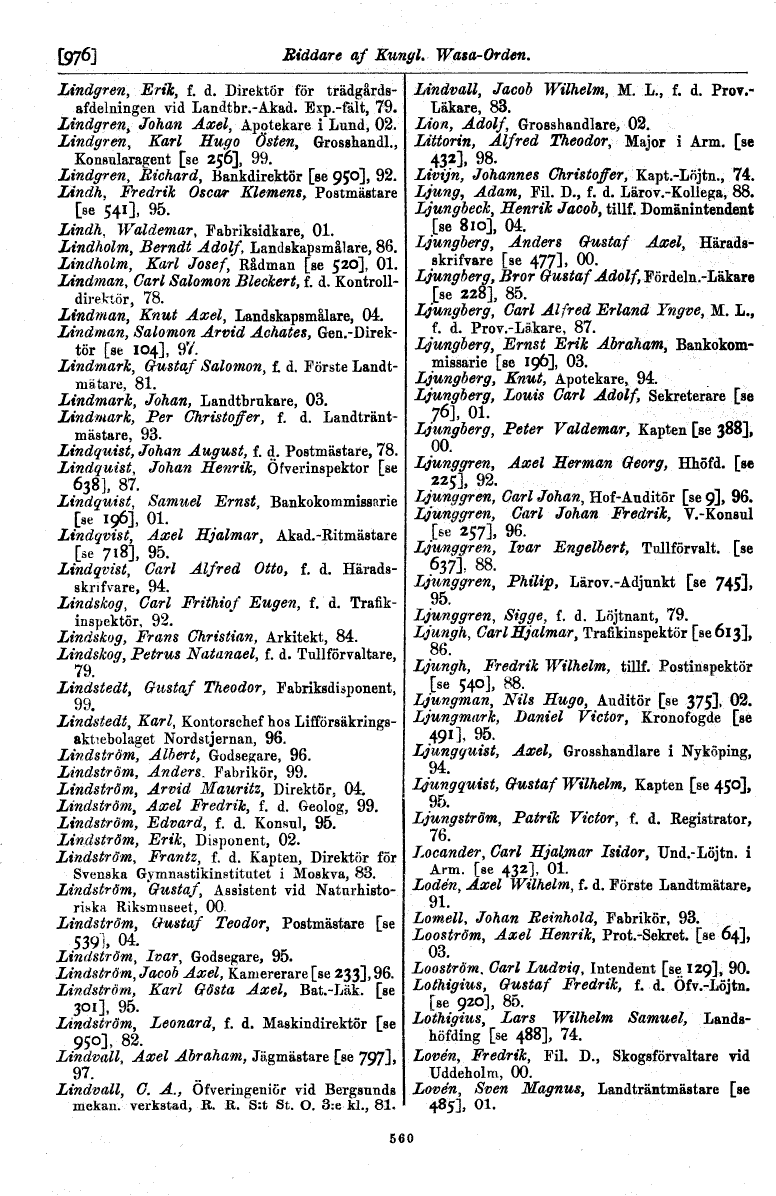 [976]
Riddare af Kungl. Wasa-Orden.
Lindgren, Erik, f. d. Direktör för trädgårds-
afdelningen vid Landtbr.-Akad. Exp.-fält, 79.
Lindgren, Johan Axel, Apotekare i Lund, 02.
Lindgren, Karl Hugo Östen, Grosshandl.,
Konsularagent [se 256], 99.
Lindgren, Richard, Bankdirektör [se 950], 92.
Lindh, Fredrik Oscar Klemens, Postmästare
[se 541], 95.
Lindh, Waldemar, Fabriksidkare, 01.
Lindholm, Berndt Adolf, Landskapsmålare, 86.
Lindholm, Karl Josef, Rådman [se 520], 01.
Lindman, Carl Salomon Bleckert, f. d. Kontroll-
direktör, 78.
Lindman, Knut Axel, Landskapsmålare, 04.
Lindman, Salomon Arvid Achates, Gen.-Direk-
tör [se 104], 97.
Lindmark, Gustaf Salomon, f. d. Förste Landt-
mätare, 81.
Lindmark, Johan, Landtbrukare, 03.
Lindmark, Per Christoffer, f. d. Landtränt-
mästare, 93.
Lindquist, Johan August, f. d. Postmästare, 78.
Lindquist, Johan Henrik, Öfverinspektor [se
638], 87.
Lindquist, Samuel Ernst, Bankokommissarie
[se 196], 01.
Lindqvist, Axel Hjalmar, Akad.-Ritmästare
[se 718], 95.
Lindqvist, Carl Alfred Otto, f. d. Härads-
skrifvare, 94.
Lindskog, Carl Frithiof Eugen, f. d. Trafik-
inspektör, 92.
Lindskog, Frans Christian, Arkitekt, 84.
Lindskog, Petrus Natanael, f. d. Tullförvaltare,
79.
Lindstedt, Gustaf Theodor, Fabriksdisponent,
99.
Lindstedt, Karl, Kontorschef hos Lifförsäkrings-
aktiebolaget Nordstjernan, 96.
Lindström, Albert, Godsegare, 96.
Lindström, Anders, Fabrikör, 99.
Lindström, Arvid Mauritz, Direktör, 04.
Lindström, Axel Fredrik, f. d. Geolog, 99.
Lindström, Edvard, f. d. Konsul, 95.
Lindström, Erik, Disponent, 02.
Lindström, Frantz, f. d. Kapten, Direktör för
Svenska Gymnastikinstitutet i Moskva, 83.
Lindström, Gustaf, Assistent vid Naturhisto-
riska Riksmuseet, 00.
Lindström, Gustaf Teodor, Postmästare [se
539], 04.
Lindström, Ivar, Godsegare, 95.
Lindström, Jacob Axel, Kamererare [se 233], 96.
Lindström, Karl Gösta Axel, Bat.-Läk. [se
301], 95.
Lindström, Leonard, f. d. Maskindirektör [se
950], 82.
Lindvall, Axel Abraham, Jägmästare [se 797],
97.
Lindvall, C. A., Öfveringeniör vid Bergsunds
mekan. verkstad, R. R. S:t St. O. 3:e kl., 81.
Lindvall, Jacob Wilhelm, M. L., f. d. Prov.-
Läkare, 83.
Lion, Adolf, Grosshandlare, 02.
Littorin, Alfred Theodor, Major i Arm. [se
432], 98.
Livijn, Johannes Christoffer, Kapt.-Löjtn., 74.
Ljung, Adam, Fil. D., f. d. Lärov.-Kollega, 88.
Ljungbeck, Henrik Jacob, tillf. Domänintendent
[se 810], 04.
Ljungberg, Anders Gustaf Axel, Härads-
skrifvare [se 477], 00.
Ljungberg, Bror Gustaf Adolf, Fördeln.-Läkare
[se 228], 85.
Ljungberg, Carl Alfred Erland Yngve, M. L.,
f. d. Prov.-Läkare, 87.
Ljungberg, Ernst Erik Abraham, Bankokom-
missarie [se 196], 03.
Ljungberg, Knut, Apotekare, 94.
Ljungberg, Louis Carl Adolf, Sekreterare [se
76], 01.
Ljungberg, Peter Valdemar, Kapten [se 388],
00.
Ljunggren, Axel Herman Georg, Hhöfd. [se
225], 92.
Ljunggren, Carl Johan, Hof-Auditör [se 9], 96.
Ljunggren, Carl Johan Fredrik, V.-Konsul
[se 257], 96.
Ljunggren, Ivar Engelbert, Tullförvalt. [se
637], 88.
Ljunggren, Philip, Lärov.-Adjunkt [se 745],
95.
Ljunggren, Sigge, f. d. Löjtnant, 79.
Ljungh, Carl Hjalmar, Trafikinspektör [se 613],
86.
Ljungh, Fredrik Wilhelm, tillf. Postinspektör
[se 540], 88.
Ljungman, Nils Hugo, Auditör [se 375], 02.
Ljungmark, Daniel Victor, Kronofogde [se
491], 95.
Ljungquist, Axel, Grosshandlare i Nyköping,
94.
Ljungquist, Gustaf Wilhelm, Kapten [se 450],
95.
Ljungström, Patrik Victor, f. d. Registrator,
76.
Locander, Carl Hjalmar Isidor, Und.-Löjtn. i
Arm. [se 432], 01.
Lodén, Axel Wilhelm, f. d. Förste Landtmätare,
91.
Lomell, Johan Reinhold, Fabrikör, 93.
Looström, Axel Henrik, Prot.-Sekret. [se 64],
03.
Looström, Carl Ludvig, Intendent [se 129], 90.
Lothigius, Gustaf Fredrik, f. d. Öfv.-Löjtn.
[se 920], 85.
Lothigius, Lars Wilhelm Samuel, Lands-
höfding [se 488], 74.
Lovén, Fredrik, Fil. D., Skogsförvaltare vid
Uddeholm, 00.
Lovén, Sven Magnus, Landträntmästare [se
485], 01.
560